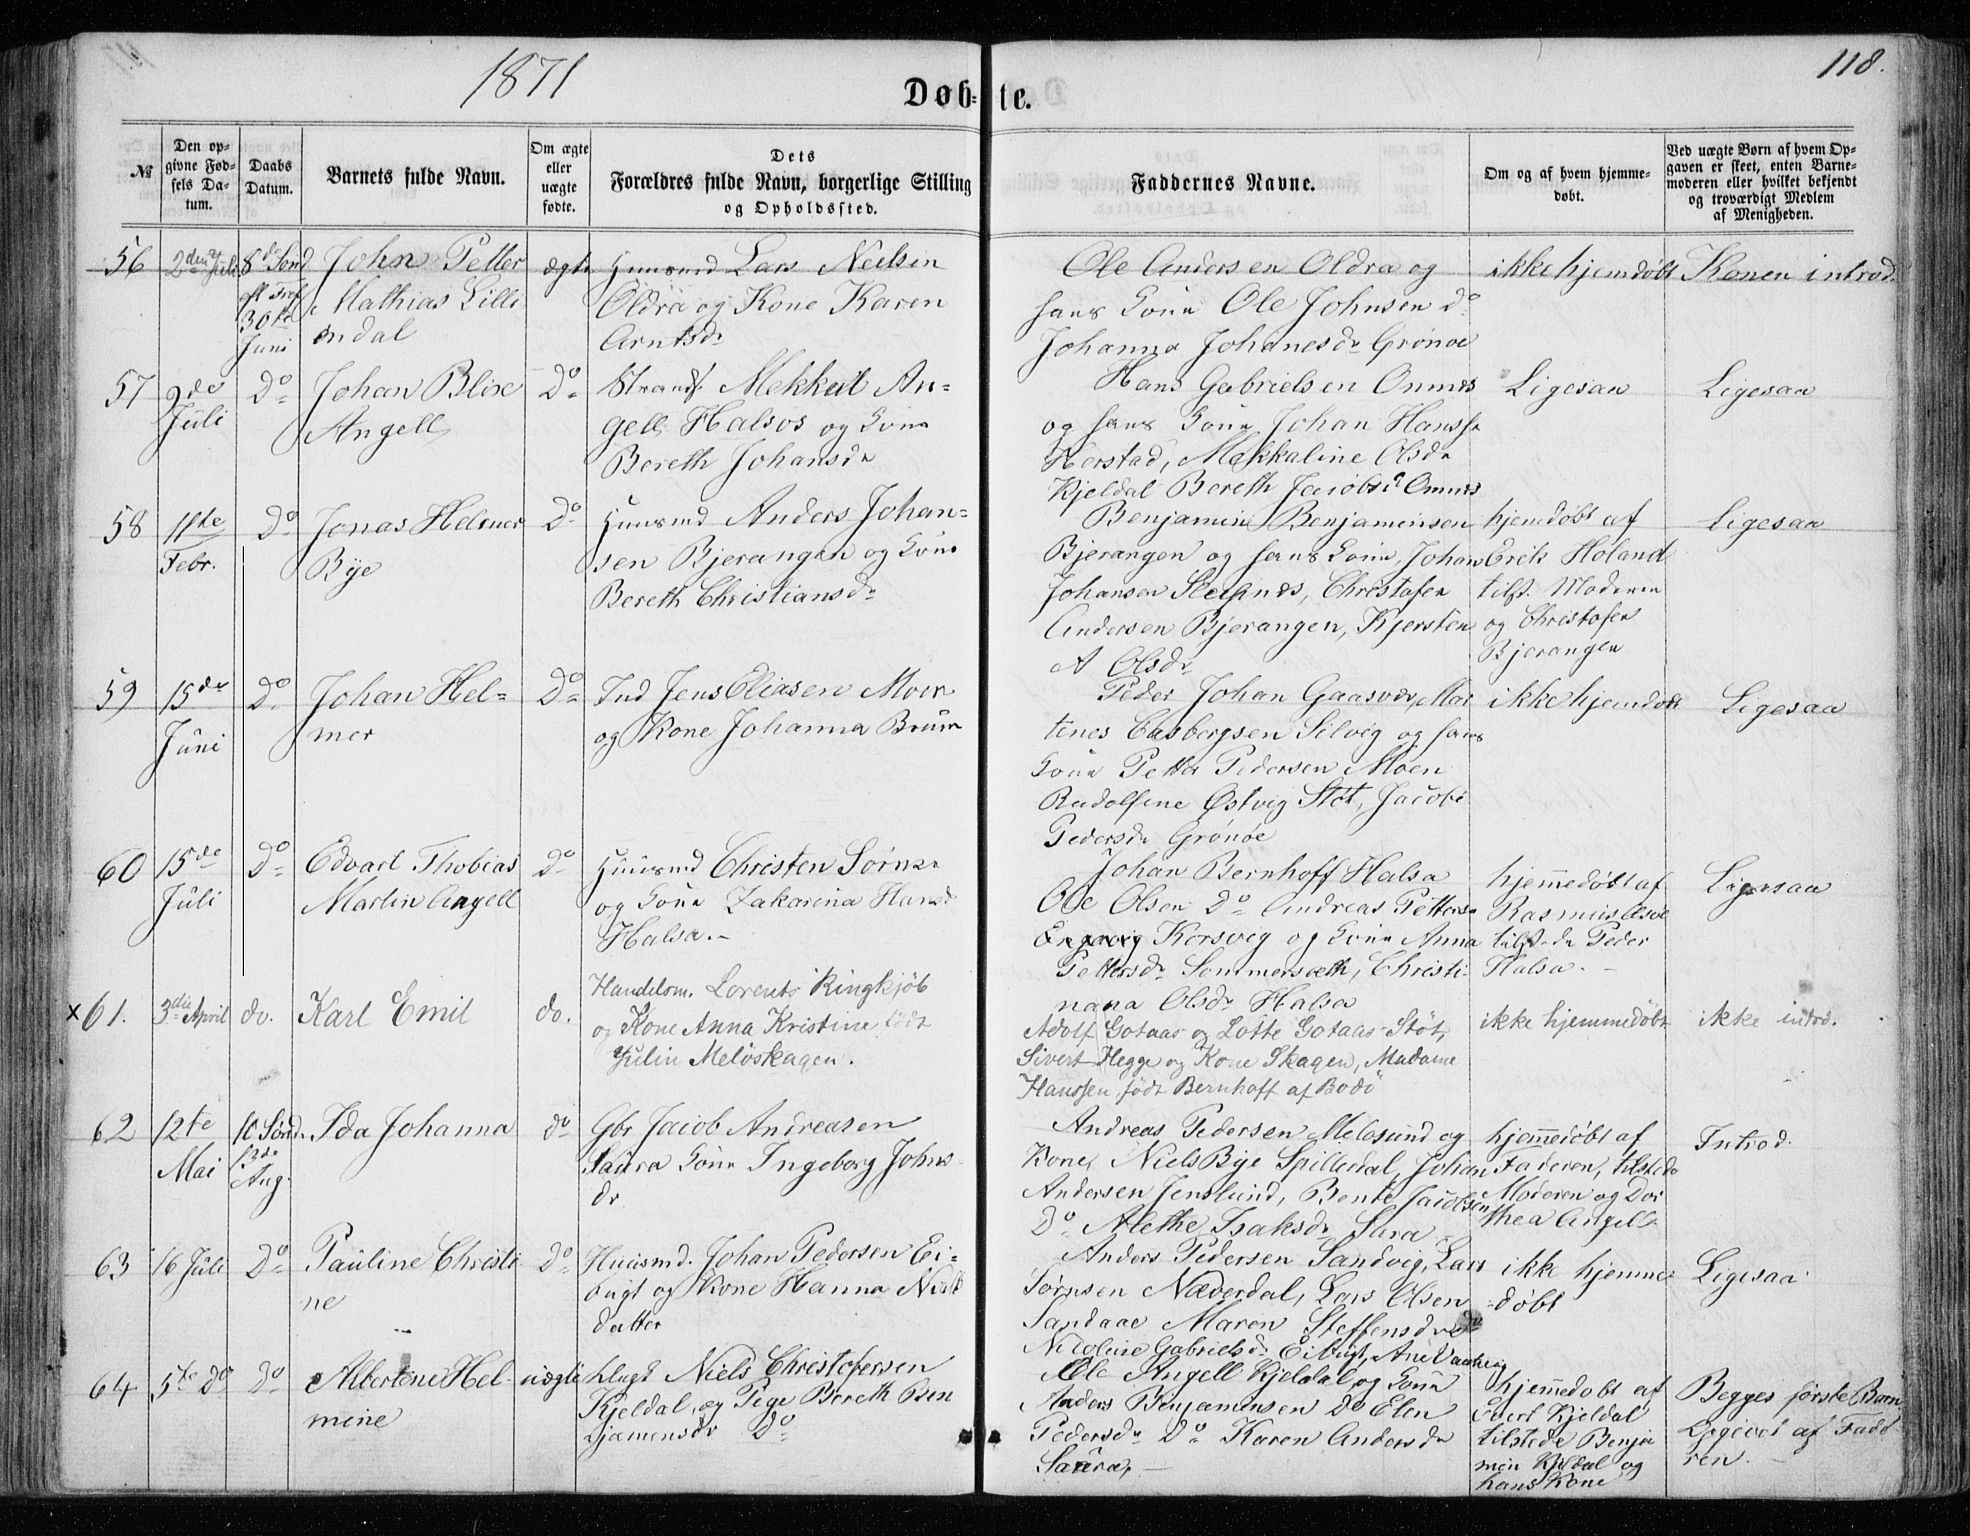 1871
118.
Døb-te.
№
Den op-
givne Fød-
sels Da-
tum.
Daabs
Datum.
Barnets fulde Navn.
Om ægte
eller
uægte
fødte.
Dets
Forældres fulde Navn, borgerlige Stilling
og Opholdssted.
Faddernes Navne.
Om og af hvem hjemme-
døbt.
Ved uægte Børn af hvem Op-
gaven er skeet, enten Barne-
moderen eller hvilket bekjendt
og troværdigt Medlem
af Menigheden.
56
2den Juli
8de Sønd
eft Tref
30te
Juni
John Petter
Mathias Lille
ondal
ægte
Huusmd Lars Neilsen
Oldra og Kone Karen
Arntsdr
Ole Andersen Oldra og
hans Kone Ole Johnsen do
Johanna Johanesdr Grønøe
ikke hjemdøbt
Konen introd.
57
2de
Juli
Do
Johan Blix
Angell
Do
Strands. Mekkeil An-
gell Halsos og Kone
Bereth Johansdr
Hans Gabrielsen Onnes
og hans Kone Johan Hanss
Herstad, Mekkaline Olsdr
Kjeldal Bereth Jacobsd Onnes
Ligesaa
Ligesaa
58
11te
Febr.
Do
Jonas Helmer
Bye
Do
Huusmd Anders Johan-
sen Bjerangen og Kone
Bereth Christiansdr
Benjamin Benjaminsen
Bjerangen og hans Kone, Johan
Johansen Selsnes, Christofer
Andersen Bjerangen, Kjersten
A Olsdr
hjemdøbt af
Erik Holand
tilst. Moderen
og Christofer
Bjerangen
Ligesaa
59
15de
Juni
Do
Johan Hel-
mer
Do
Ind Jens Eliasen Moen
og Kone Johanna Bruun
Peder Johan Gaasvær, Mar
tines Casbergsen Selvig og hans
Kone Petter Pedersen Moen
Rudolfine Østvig Støt, Jacobi
Pedersdr Grønøe
ikke hjemdøbt
Ligesaa
60
15de
Juli
Do
Edvart Thobias
Martin Angell
Do
Huusmd Christen Sørnsn
og Kone Zakarina Hansd
Halsa.-
Johan Bernhoff Halsa
Ole Olsen Do Andreas Petters
Korsvig og Kone Anna
Pettersdr Sommersæth, Christi-
nana Olsdr Halsa
hjemedøbt af
Rasmus Olsøe
tilstede Peder
Halsa.-
Ligesaa
x 61.
3die April
do.
Karl Emil
do.
Handelsm. Lorents Ringkjøb
og Kone Anna Kristine født
Julin Meløskagen.
Adolf Gotaas og Lotte Gotaas Støt,
Sivert Hegge og Kone Skagen, Madame
Hanssen født Bernhoff af Bodö
ikke hjemmedöbt
ikke introd.
62
12te
Mai
10 Sønd.
13de
Aug.
Ida Johanna
do
Gbr Jacob Andreasen
Saura Kone Ingeborg Johns
dr
Andreas Pedersen Meløsund og
Kone, Niels Bye Spilderdal, Johan
Andersen Jenslund, Bente Jacobsen
Do Alethe Isaksdr Sara
hjemedøbt af
Faderen, tilstede
Moderen og Dor
thea Angell
Introd.
63
16 Juli
Do
Pauline Christi
ne
Do
Huusmd. Johan Pedersen Ei-
bugt og Kone Hanna Niels
datter
Anders Pedersen Sandvig, Lars
Sørnsen Næverdal, Lars Olsen
Sandaae Maren Steffensdr do
Nicoline Gabrielsdr Eibugt, Ane Vaatvig
ikke hjemme-
døbt
Ligesaa
64
5te do
do
Albertine Hel-
mine
uægte
Ungk Niels Christofersen
Kjeldal, og Pige Bereth Ben
jamensdr Do
Ole Angell Kjeldal og Kone
Anders Benjaminsen do Elen
Pedersdr Do Karen Andersdr
Saura,-
hjemedøbt af
Evert Kjeldal
tilstede Benja
min Kjeldal og
hans Kone
Begges første Barn
Opgivet af Fadd
ren.-